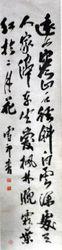 遠上寒山石徑斜白雲深處有
人家停車坐愛楓林晚霜葉
紅於二月花